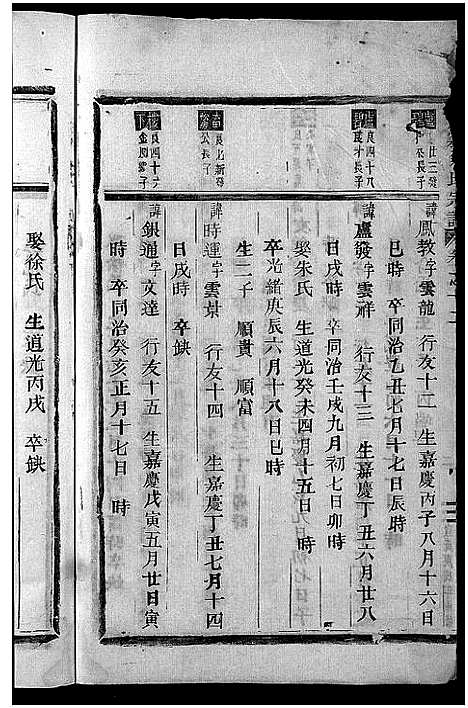 諱鳳教字雲龍 行友十二 生嘉慶丙子八月十六日
巳時 卒同治乙丑七月十七日辰時
良四十八
長子
諱盧發字雲祥 行友十三 生嘉慶丁丑六月廿八
日戌時 卒同治壬戌九月初七日卯時
娶朱氏 生道光癸未四月十五日 時
卒光緒庚辰六月十八日巳時
生二子 順貴 順富
公長子
諱時運字雲景 行友十四 生嘉慶丁丑七月十四
日戌時 卒缺
良四十六
諱銀通字文達 行友十五 生嘉慶戊寅五月廿日寅
時 卒同治癸亥正月十七日 時
娶徐氏 生道光丙戌 卒缺